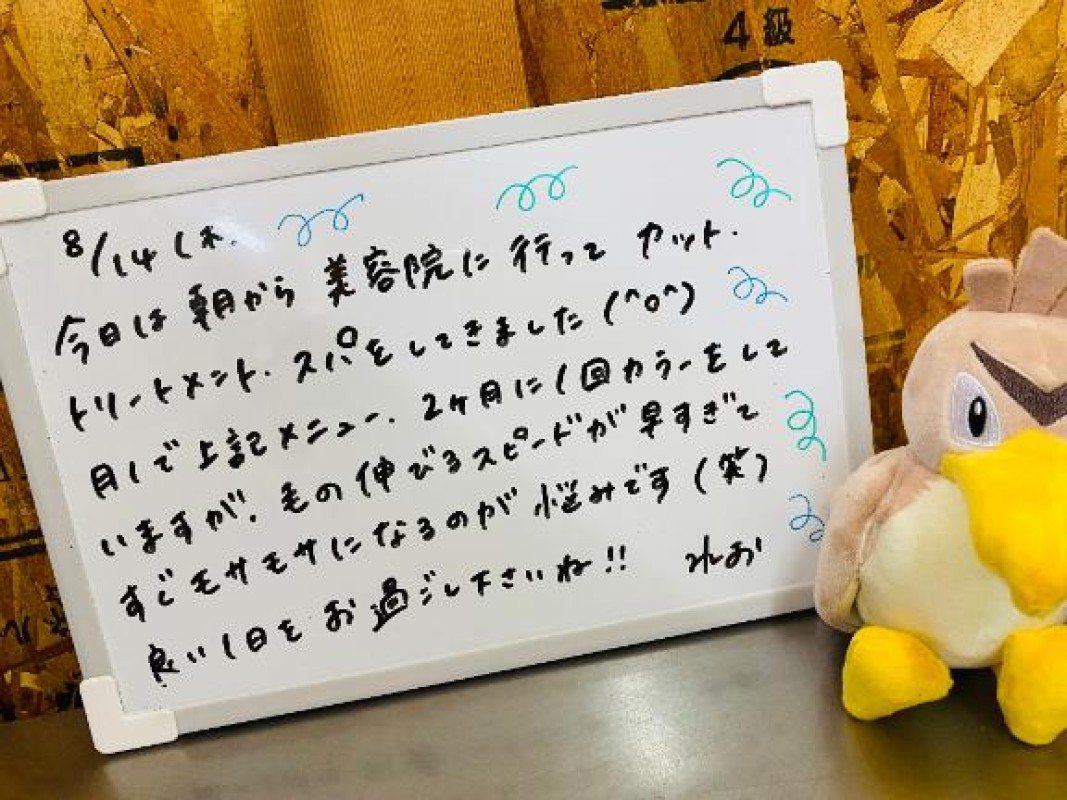 4級
8/14(水.
今日は朝から美容院に行ってカット.
トリートメント.スパをしてきました(^o^)
月1で上記メニュー.2ヶ月に1回カラーをして
いますが.毛の伸びるスピードが早すぎて
すぐモサモサになるのが悩みです(笑)
良い1日をお過ごし下さいね!!